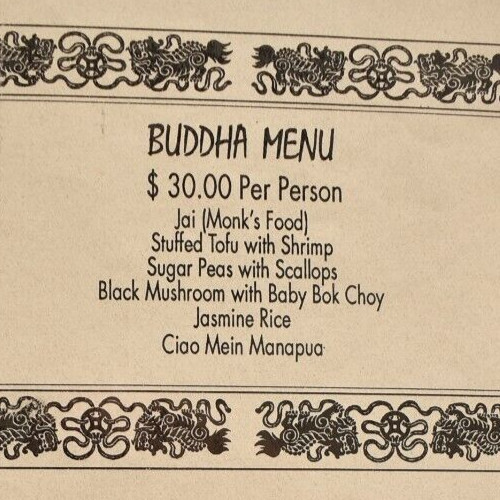 BUDDHA MENU
$ 30.00 Per Person
Jai (Monk's Food)
Stuffed Tofu with Shrimp
Sugar Peas with Scallops
Black Mushroom with Baby Bok Choy
Jasmine Rice
Ciao Mein Manapua